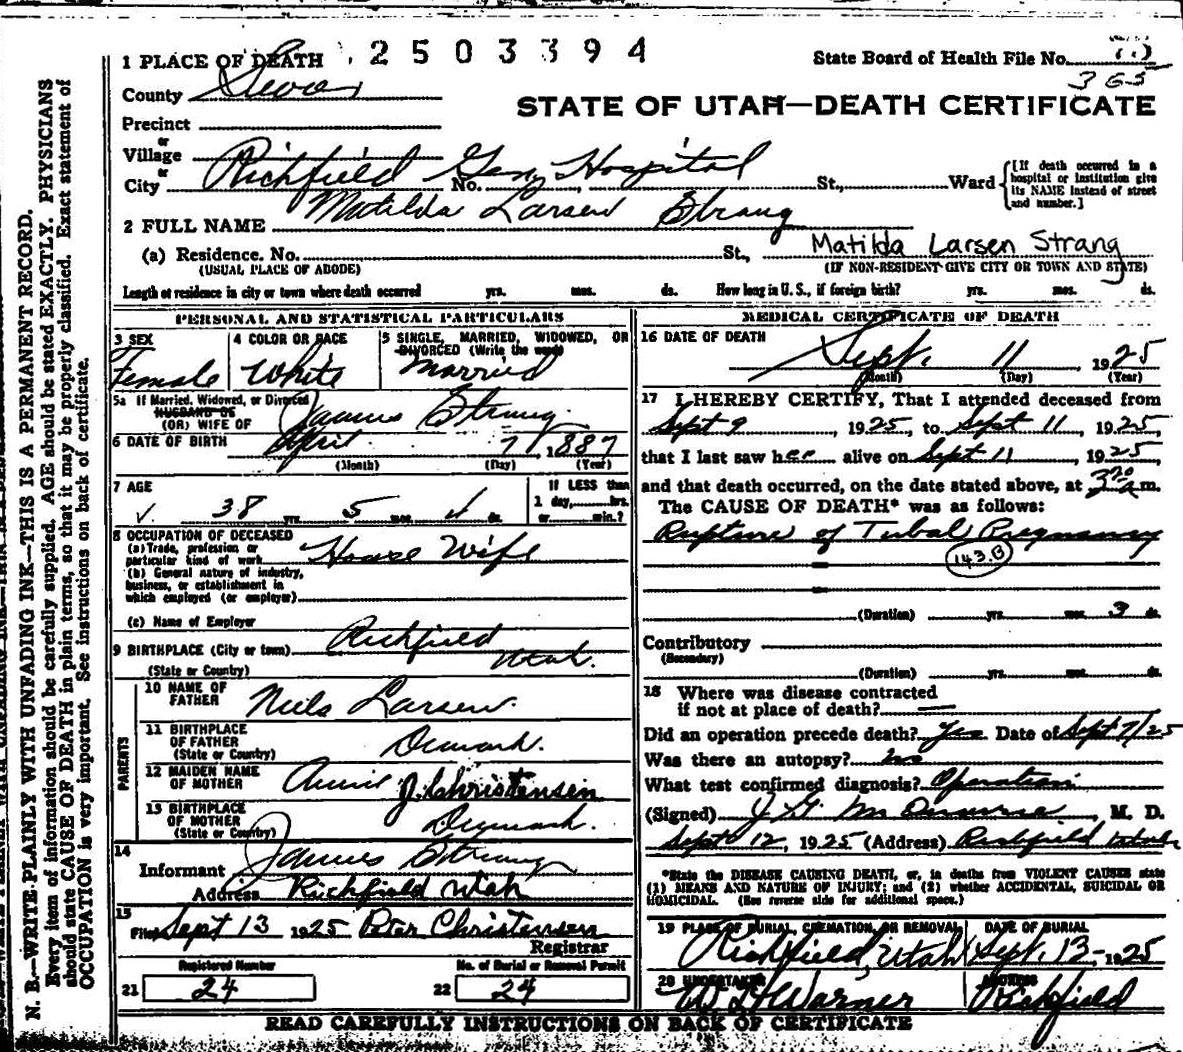 1 PLACE OF DEATH 2503394 State Board of Health File No. 75
365
County Sevier
STATE OF UTAH—DEATH CERTIFICATE
Precinct
or
Village
or
City Richfield No. Gen. Hospital St., Ward
[If death occurred in a hospital or institution give its NAME instead of street and number.]
2 FULL NAME Matilda Larsen Strang
(a) Residence. No. St., Matilda Larsen Strang
(USUAL PLACE OF ABODE) (IF NON-RESIDENT GIVE CITY OR TOWN AND STATE)
Length of residence in city or town where death occurred yrs. mos. ds. How long in U. S., if foreign birth? yrs. mos. ds.
PERSONAL AND STATISTICAL PARTICULARS
3 SEX Female
4 COLOR OR RACE White
5 SINGLE, MARRIED, WIDOWED, OR DIVORCED (Write the word) Married
5a If Married, Widowed, or Divorced
HUSBAND OF
(OR) WIFE OF James Strang
6 DATE OF BIRTH April 7, 1887
(Month) (Day) (Year)
7 AGE 38 yrs. 5 mos. 4 ds.
If LESS than 1 day, hrs. or min.?
8 OCCUPATION OF DECEASED
(a) Trade, profession or particular kind of work House Wife
(b) General nature of industry, business, or establishment in which employed (or employer)
(c) Name of Employer
9 BIRTHPLACE (City or town) Richfield
(State or Country) Utah.
PARENTS
10 NAME OF FATHER Niels Larsen.
11 BIRTHPLACE OF FATHER (State or Country) Denmark.
12 MAIDEN NAME OF MOTHER Annie J. Christensen
13 BIRTHPLACE OF MOTHER (State or Country) Denmark.
14
Informant James Strang
Address Richfield Utah
15
Filed Sept 13 1925 Peter Christensen
Registrar
Registered Number
21 24
No. of Burial or Removal Permit
22 24
MEDICAL CERTIFICATE OF DEATH
16 DATE OF DEATH
Sept. 11 1925
(Month) (Day) (Year)
17 I HEREBY CERTIFY, That I attended deceased from
Sept 9, 1925, to Sept 11, 1925,
that I last saw her alive on Sept 11, 1925,
and that death occurred, on the date stated above, at 3 30 a m.
The CAUSE OF DEATH* was as follows:
Rupture of Tubal Pregnancy
143.B
(Duration) yrs. mos. 3 ds.
Contributory
(Secondary)
(Duration) yrs. mos. ds.
18 Where was disease contracted
if not at place of death? —
Did an operation precede death? Yes Date of Sept 9/25
Was there an autopsy? No
What test confirmed diagnosis? Operation
(Signed) J. G. M, M. D.
Sept 12, 1925 (Address) Richfield Utah
*State the DISEASE CAUSING DEATH, or, in deaths from VIOLENT CAUSES state
(1) MEANS AND NATURE OF INJURY; and (2) whether ACCIDENTAL, SUICIDAL OR
HOMICIDAL. (See reverse side for additional space.)
19 PLACE OF BURIAL, CREMATION, OR REMOVAL Richfield, Utah
DATE OF BURIAL Sept. 13-, 1925
20 UNDERTAKER W. Warner
ADDRESS Richfield
READ CAREFULLY INSTRUCTIONS ON BACK OF CERTIFICATE
N. B.—WRITE PLAINLY WITH UNFADING INK—THIS IS A PERMANENT RECORD.
Every item of information should be carefully supplied. AGE should be stated EXACTLY. PHYSICIANS
should state CAUSE OF DEATH in plain terms, so that it may be properly classified. Exact statement of
OCCUPATION is very important. See instructions on back of certificate.